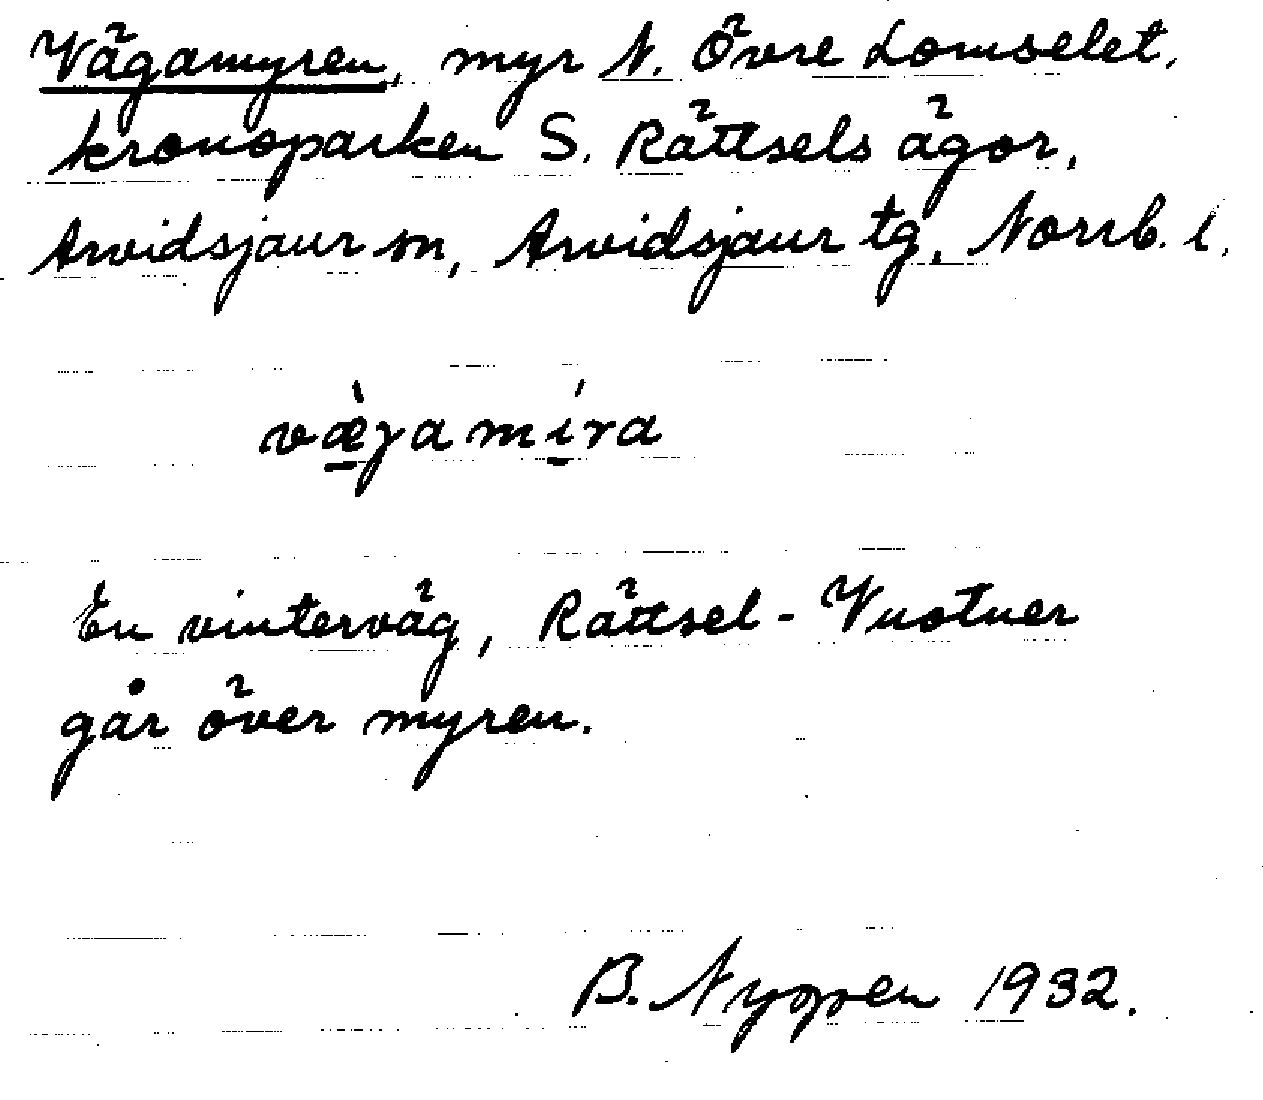 Vägamyren, myr N. Övre Lomselet,
kronoparken S. Rättsels ägor,
Arvidsjaur sn, Arvidsjaur tg, Norrb. l.
væ̀gamíra
En vinterväg, Rättsel - Vuotner
går över myren.
B. Nyppen 1932.